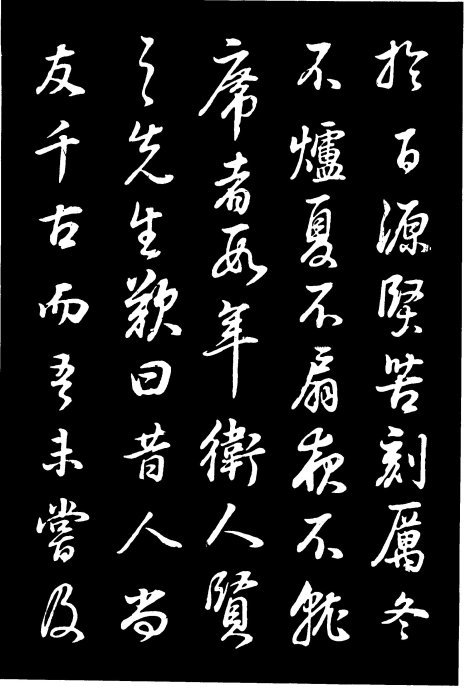 於百源堅苦刻厲冬
不爐夏不扇夜不就
席者數年衛人賢
之先生歎曰昔人尚
友千古而吾未嘗及